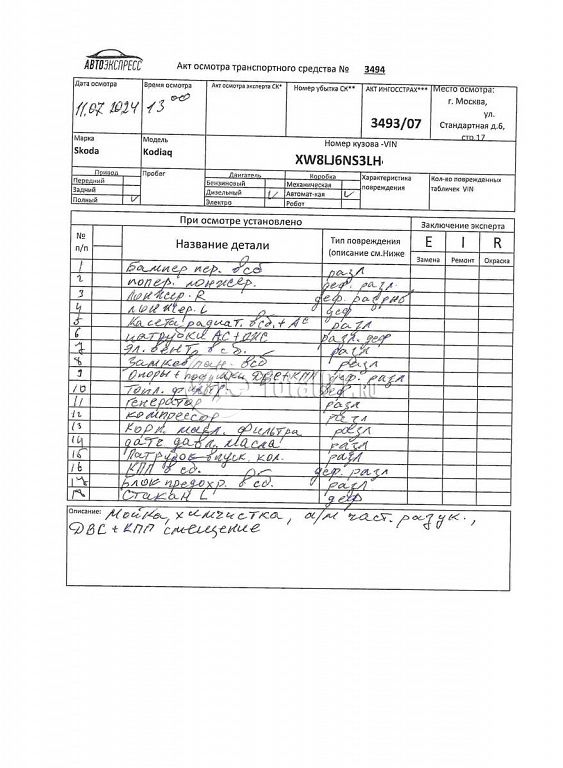 АВТОЭКСПРЕСС
Акт осмотра транспортного средства № 3494
Дата осмотра
11.07 2024
Время осмотра
13 00
Акт осмотра эксперта СК*
Номер убытка СК**
АКТ ИНГОССТРАХ***
3493/07
Место осмотра:
г. Москва,
ул.
Стандартная д.6,
стр.17
Марка
Skoda
Модель
Kodiaq
Номер кузова -VIN
XW8LJ6NS3LH
Привод
Передний
Задний
Полный V
Пробег
Двигатель
Бензиновый
Дизельный V
Электро
Коробка
Механическая
Автомат-кая V
Робот
Характеристика
повреждения
Кол-во поврежденных
табличек VIN
При осмотре установлено
Заключение эксперта
№
п/п
Название детали
Тип повреждения
(описание см.Ниже
E I R
Замена Ремонт Окраска
1 Бампер пер. в сб разл
2 попер. лонжер. деф. разл.
3 Лонжер. R деф.
4 лонжер. L деф
5 Касета радиат. в сб. + АС разл
6 патрубки АС+ разл. деф
7 эл. вент. в сб. разл
8 в сб разл
9 Опоры + ДВС+КПП деф. разл
10 Топл. деф
11 Генератор разл
12 компрессор разл
13 Корп. масл. фильтра разл
14 датч давл. масла разл
15 Патрубок впуск. кол. разл
16 КПП в сб. деф. разл
17 Блок предохр. в сб. разл
18 Стакан L деф
Описание: Мойка, химчистка, а/м част. разук.,
ДВС + КПП смещение